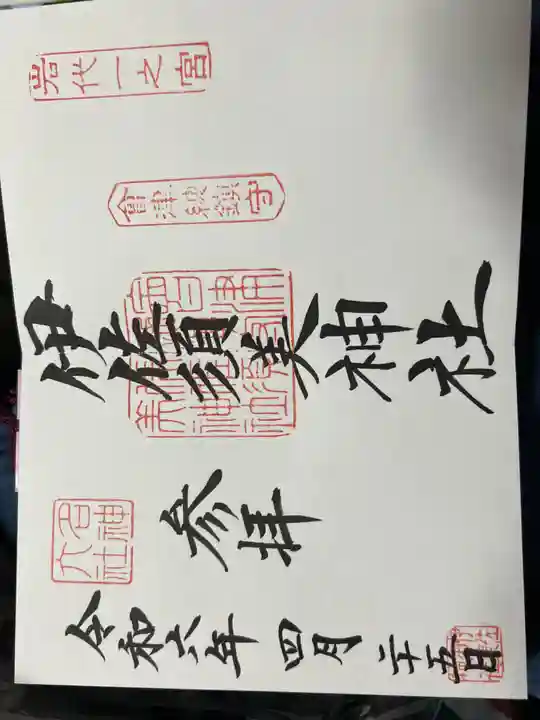 岩代一之宮
會津総鎮守
伊佐須美神社
参拝
名神大社
令和六年四月二十五日